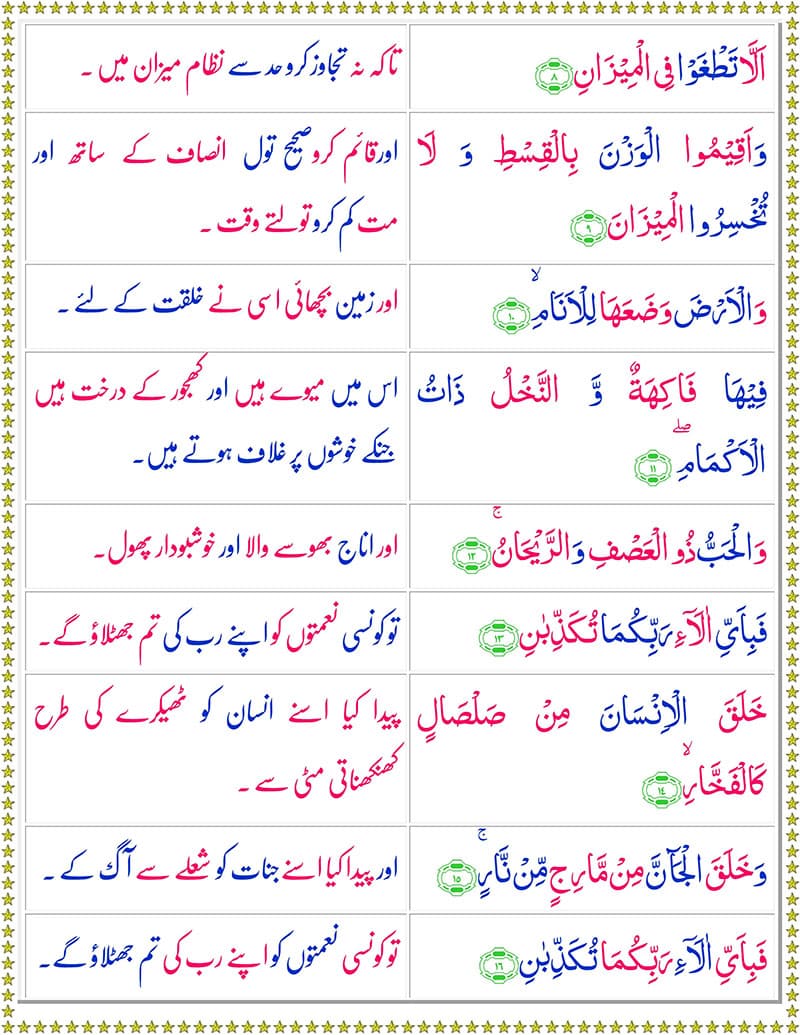 اَلَّا تَطْغَوْا فِي الْمِيْزَانِ ﴿٨﴾
تاکہ نہ تجاوز کرو حد سے نظام میزان میں ۔
وَاَقِيْمُوا الْوَزْنَ بِالْقِسْطِ وَ لَا
تُخْسِرُوا الْمِيْزَانَ ﴿٩﴾
اور قائم کرو صحیح تول انصاف کے ساتھ اور
مت کم کرو تولتے وقت ۔
وَالْاَرْضَ وَضَعَهَا لِلْاَنَامِ ۙ ﴿١٠﴾
اور زمین بچھائی اسی نے خلقت کے لئے ۔
فِيْهَا فَاكِهَةٌ وَّ النَّخْلُ ذَاتُ
الْاَكْمَامِ ۖ ﴿١١﴾
اس میں میوے ہیں اور کھجور کے درخت ہیں
جنکے خوشوں پر غلاف ہوتے ہیں۔
وَالْحَبُّ ذُو الْعَصْفِ وَالرَّيْحَانُ ۚ ﴿١٢﴾
اور اناج بھوسے والا اور خوشبودار پھول۔
فَبِاَيِّ اٰلَآءِ رَبِّكُمَا تُكَذِّبٰنِ ﴿١٣﴾
تو کونسی نعمتوں کو اپنے رب کی تم جھٹلاؤ گے۔
خَلَقَ الْاِنْسَانَ مِنْ صَلْصَالٍ
كَالْفَخَّارِ ۙ ﴿١٤﴾
پیدا کیا اسنے انسان کو ٹھیکرے کی طرح
کھنکھناتی مٹی سے ۔
وَخَلَقَ الْجَآنَّ مِنْ مَّارِجٍ مِّنْ نَّارٍ ۚ ﴿١٥﴾
اور پیدا کیا اسنے جنات کو شعلے سے آگ کے ۔
فَبِاَيِّ اٰلَآءِ رَبِّكُمَا تُكَذِّبٰنِ ﴿١٦﴾
تو کونسی نعمتوں کو اپنے رب کی تم جھٹلاؤ گے۔